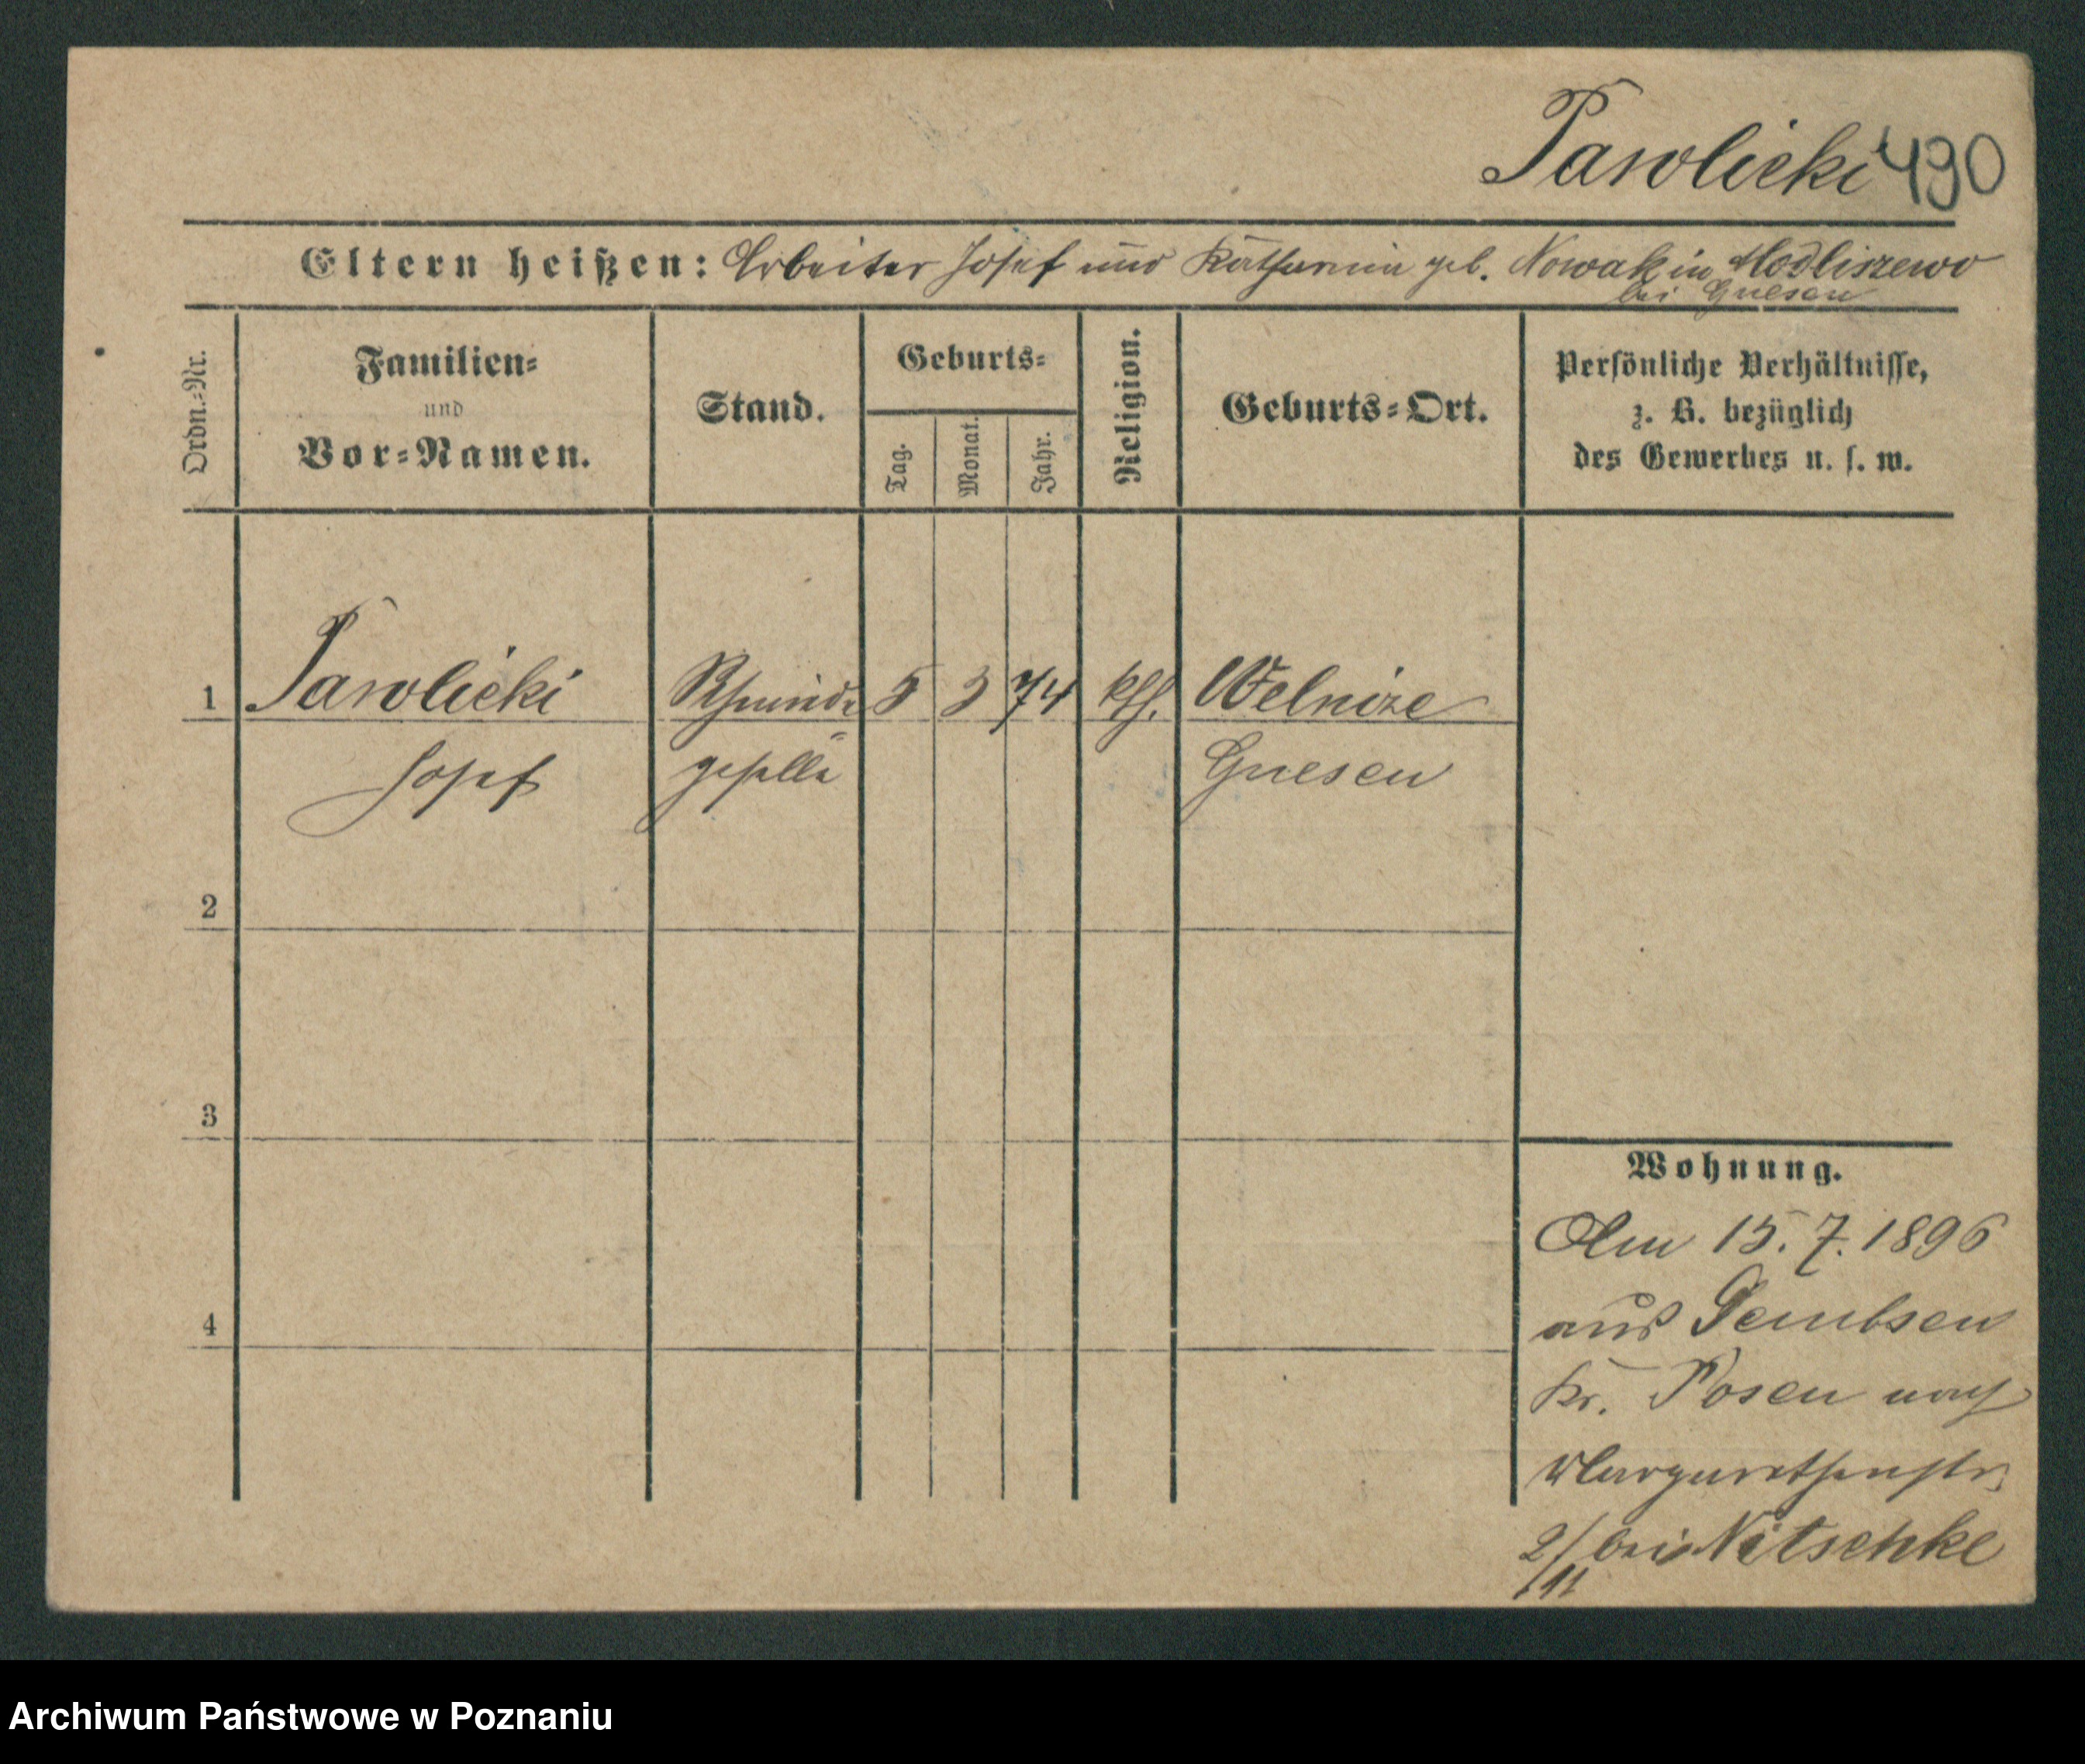 Pawlicki 490
Eltern heißen: Arbeiter Josef und Katharina geb. Nowak in Modliszewo
bei Gnesen
Ordn.-Nr.
Familien-
und
Vor-Namen.
Stand.
Geburts-
Tag.
Monat.
Jahr.
Religion.
Geburts-Ort.
Persönliche Verhältnisse,
z. B. bezüglich
des Gewerbes u. s. w.
1 Pawlicki Schmiede 5 3 74 kth. Welnize
Josef geselle Gnesen
2
3
4
Wohnung.
Am 15. 7. 1896
aus Dembsen
Kr. Posen nach
Margarethenstr.
2/11 bei Nitschke
Archiwum Państwowe w Poznaniu